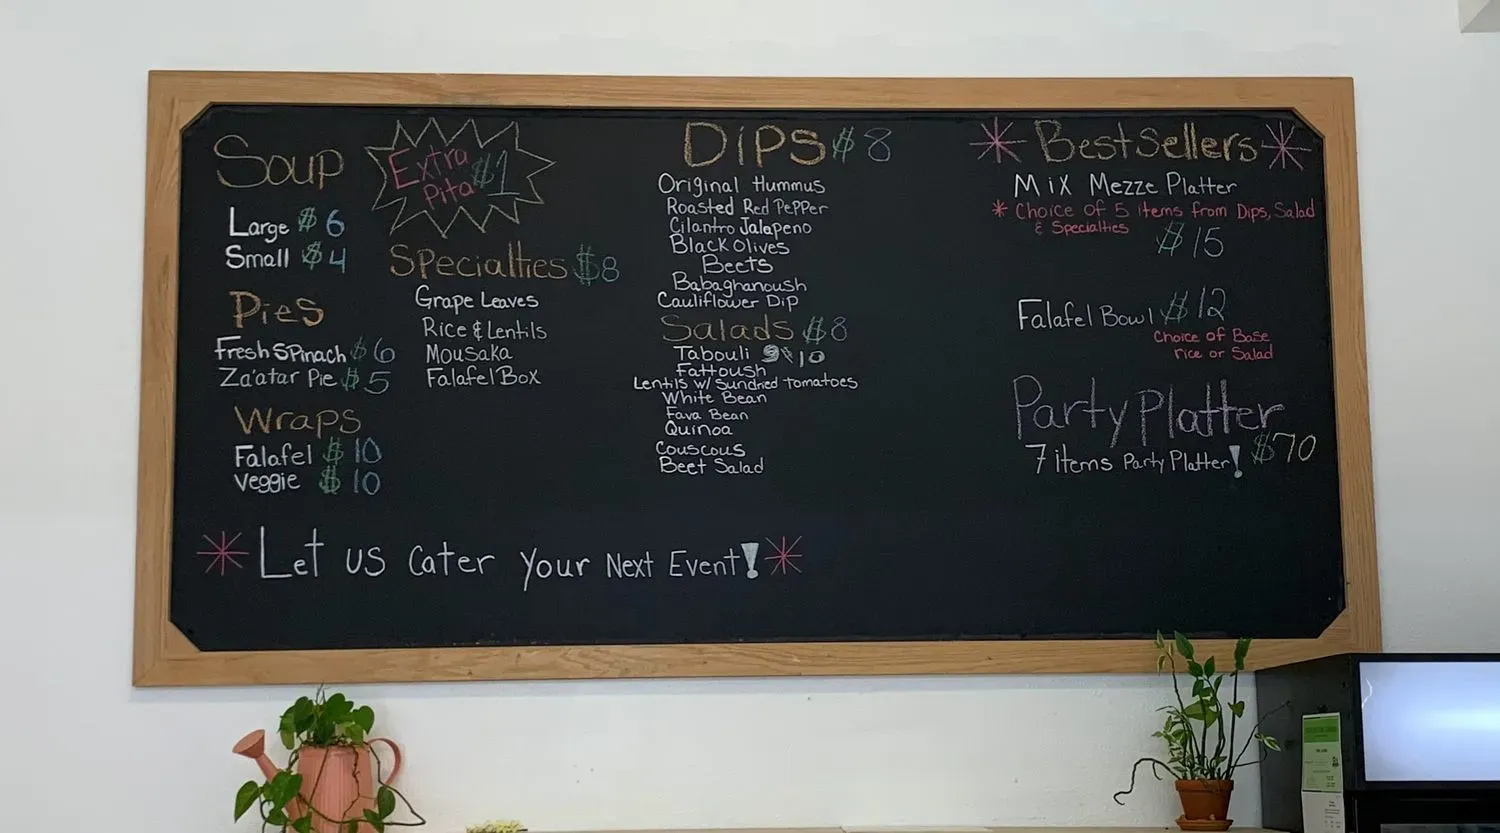 Soup
Large $6
Small $4
Pies
Fresh Spinach $6
Za'atar Pie $5
Wraps
Falafel $10
Veggie $10
Extra
Pita $1
Specialties $8
Grape Leaves
Rice & Lentils
Mousaka
Falafel Box
Dips $8
Original Hummus
Roasted Red Pepper
Cilantro Jalapeno
Black Olives
Beets
Babaghanoush
Cauliflower Dip
Salads $8
Tabouli $10
Fattoush
Lentils w/ Sundried tomatoes
White Bean
Fava Bean
Quinoa
Couscous
Beet Salad
* Best Sellers *
Mix Mezze Platter
* Choice of 5 items from Dips, Salad
& Specialties
$15
Falafel Bowl $12
Choice of Base
rice or Salad
Party Platter
7 items Party Platter! $70
* Let us cater your Next Event! *